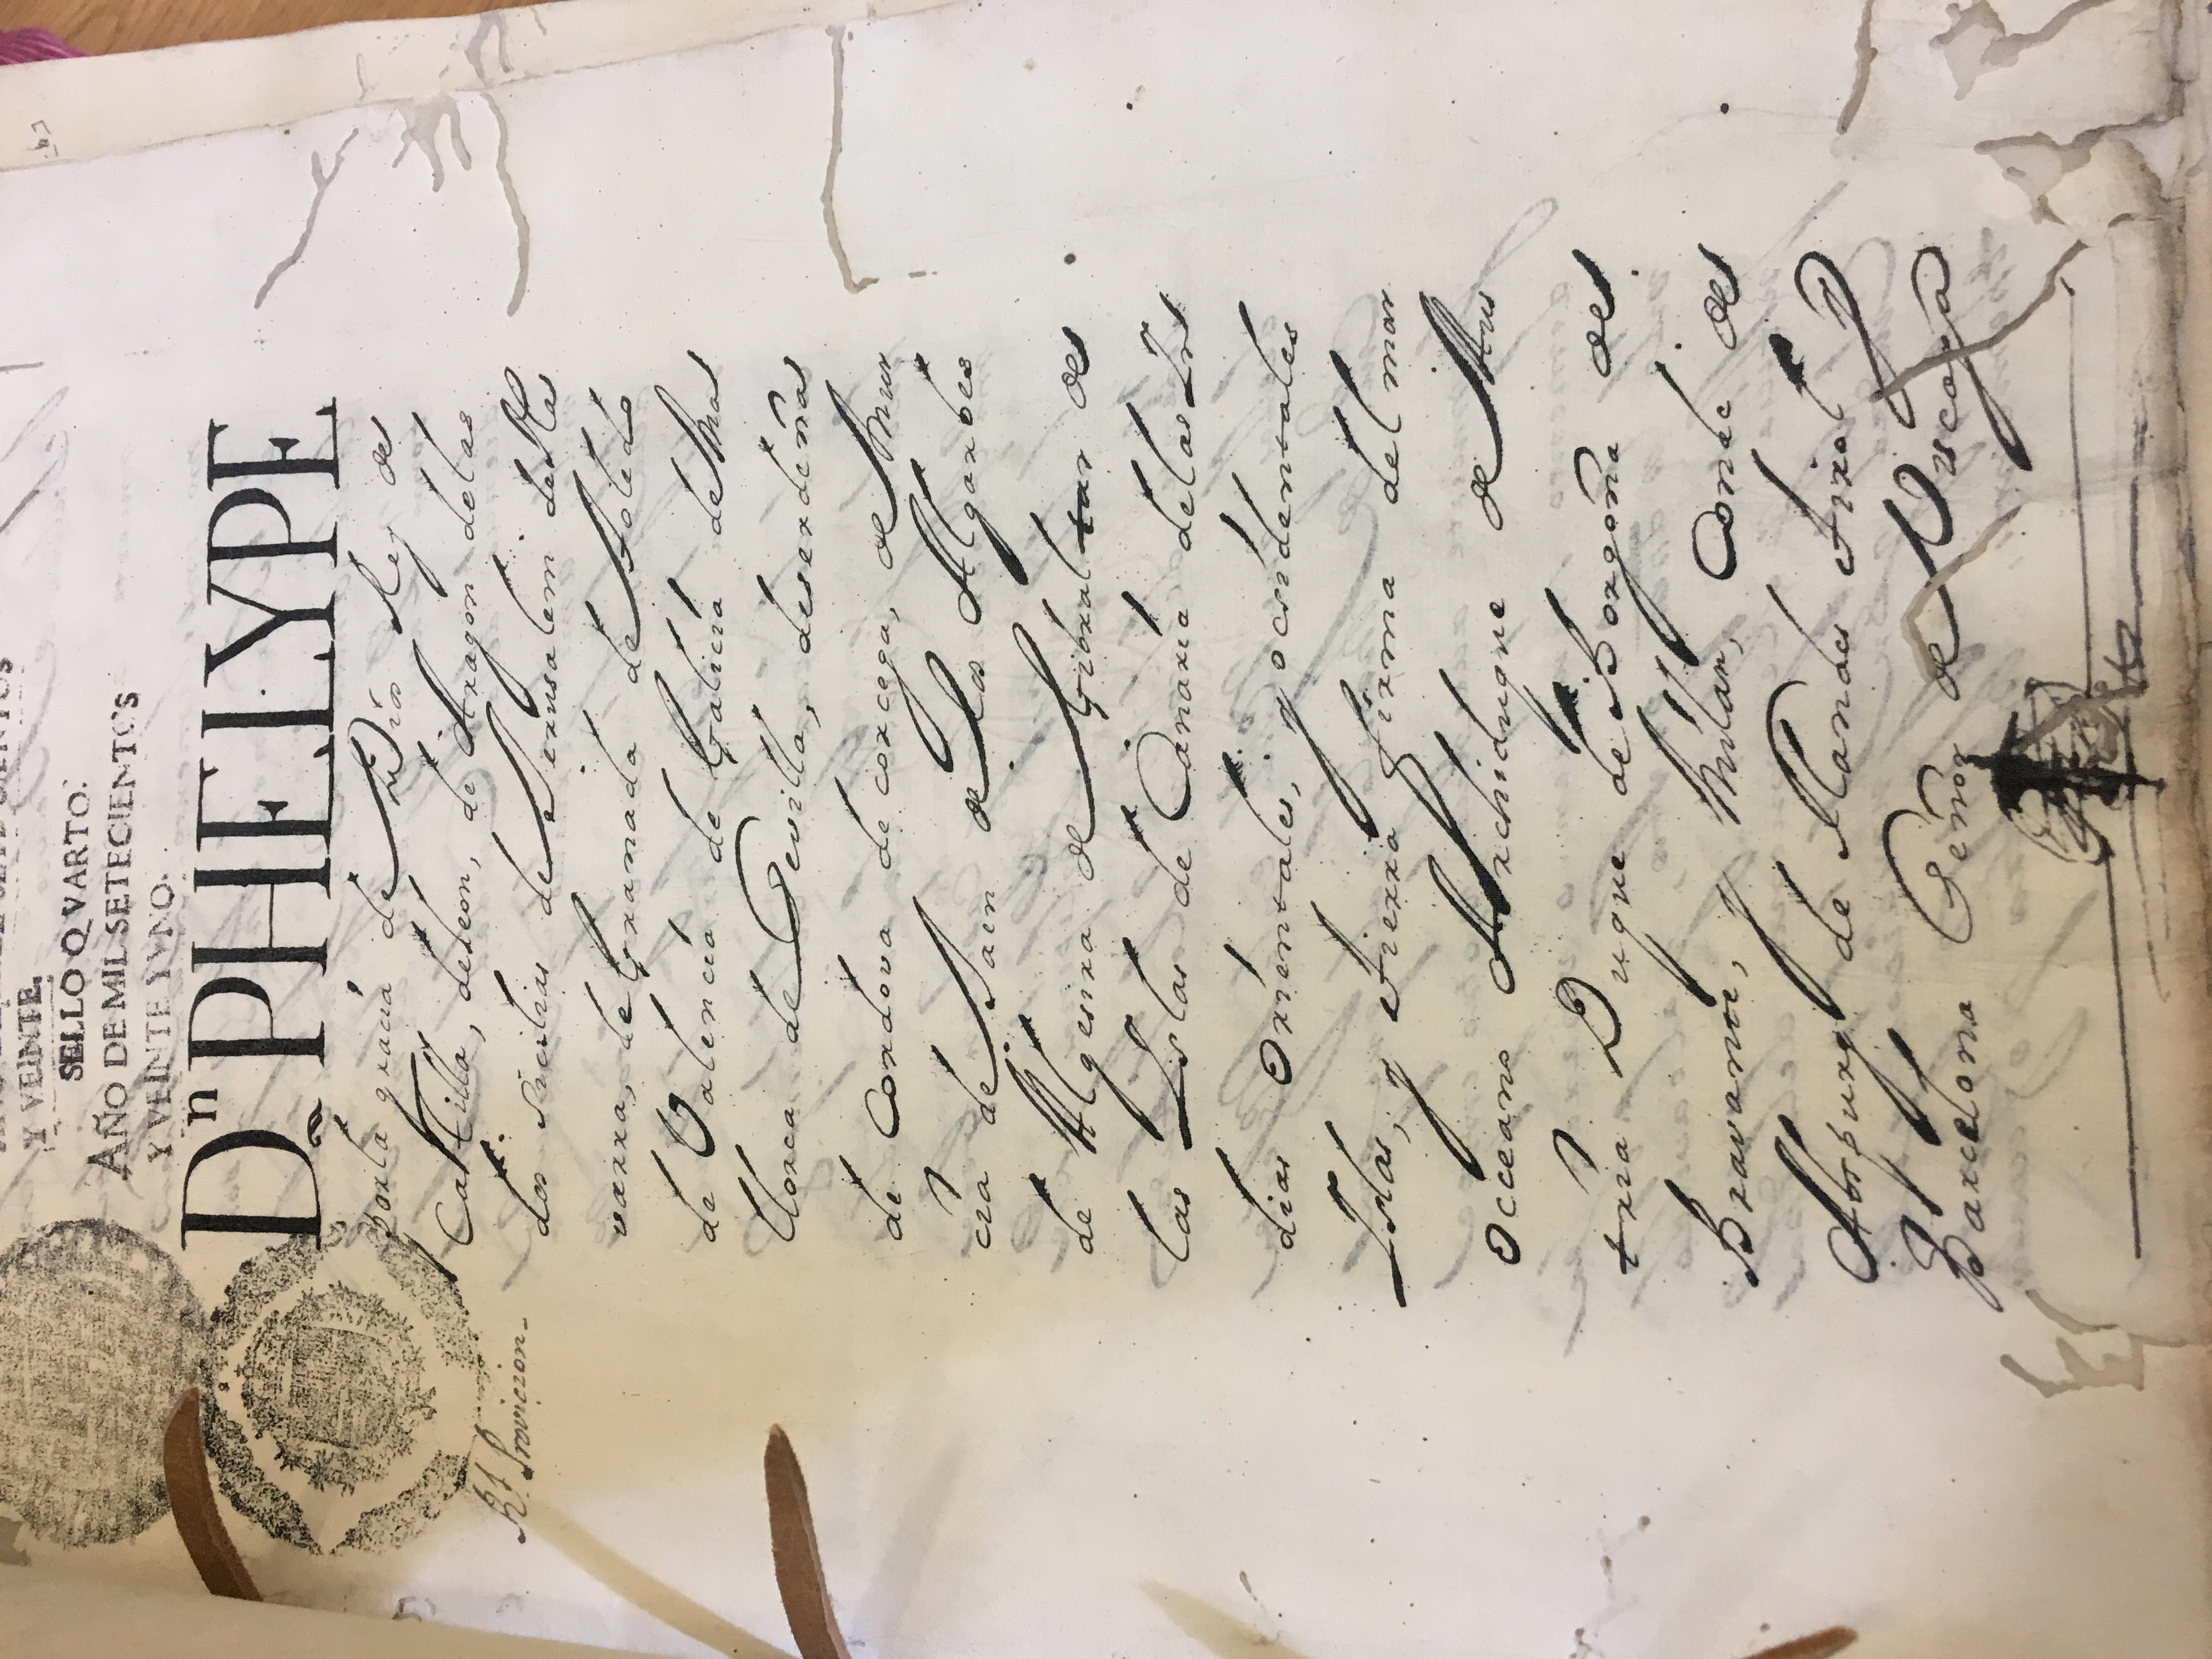 Y VEINTE.
SELLO QVARTO.
AÑO DE MIL SETECIENTOS
Y VEINTE Y VNO.
Dn PHELYPE
por la gracia de Dios Rey de
Castilla, de Leon, de Aragon de las
dos Sicilias de Jerusalem de Na
varra, de Granada de Toledo
de Valencia de Galicia de Ma
llorca de Sevilla, de serdeña
de Cordova de corcega, de Mur
cia de Jaen de los Algarbes
de Algesira de Gibraltar de
las Islas de Canaria de las In
dias Orientales, y ocsidentales
Islas, y tierra firma del mar
occeano Archiduque de Aus
tria Duque de Borgoña de
Bravante, y Milan, Conde de
Abspurg de Flandes tirol y
Barcelona Señor de Viscaya
Rl. Provicion